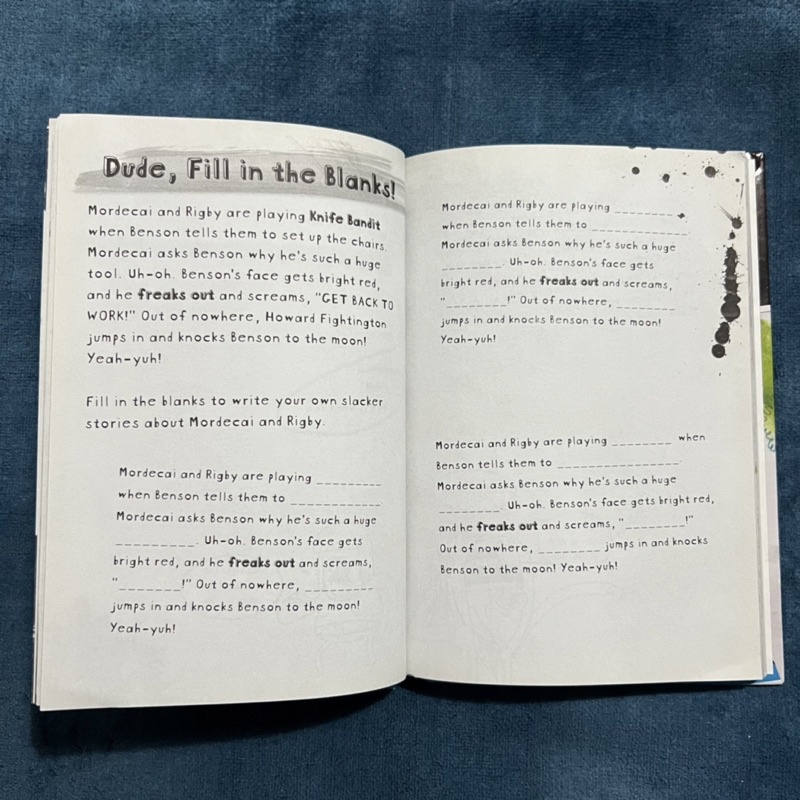 Dude, Fill in the Blanks!
Mordecai and Rigby are playing Knife Bandit
when Benson tells them to set up the chairs.
Mordecai asks Benson why he's such a huge
tool. Uh-oh. Benson's face gets bright red,
and he freaks out and screams, "GET BACK TO
WORK!" Out of nowhere, Howard Fightington
jumps in and knocks Benson to the moon!
Yeah-yuh!
Fill in the blanks to write your own slacker
stories about Mordecai and Rigby.
Mordecai and Rigby are playing ________
when Benson tells them to ____________.
Mordecai asks Benson why he's such a huge
__________. Uh-oh. Benson's face gets
bright red, and he freaks out and screams,
"________!" Out of nowhere, _________
jumps in and knocks Benson to the moon!
Yeah-yuh!
Mordecai and Rigby are playing ________
when Benson tells them to _____________.
Mordecai asks Benson why he's such a huge
________. Uh-oh. Benson's face gets
bright red, and he freaks out and screams,
"________!" Out of nowhere, ________
jumps in and knocks Benson to the moon!
Yeah-yuh!
Mordecai and Rigby are playing ________ when
Benson tells them to ________________.
Mordecai asks Benson why he's such a huge
________. Uh-oh. Benson's face gets bright red,
and he freaks out and screams, "________!"
Out of nowhere, ________ jumps in and knocks
Benson to the moon! Yeah-yuh!